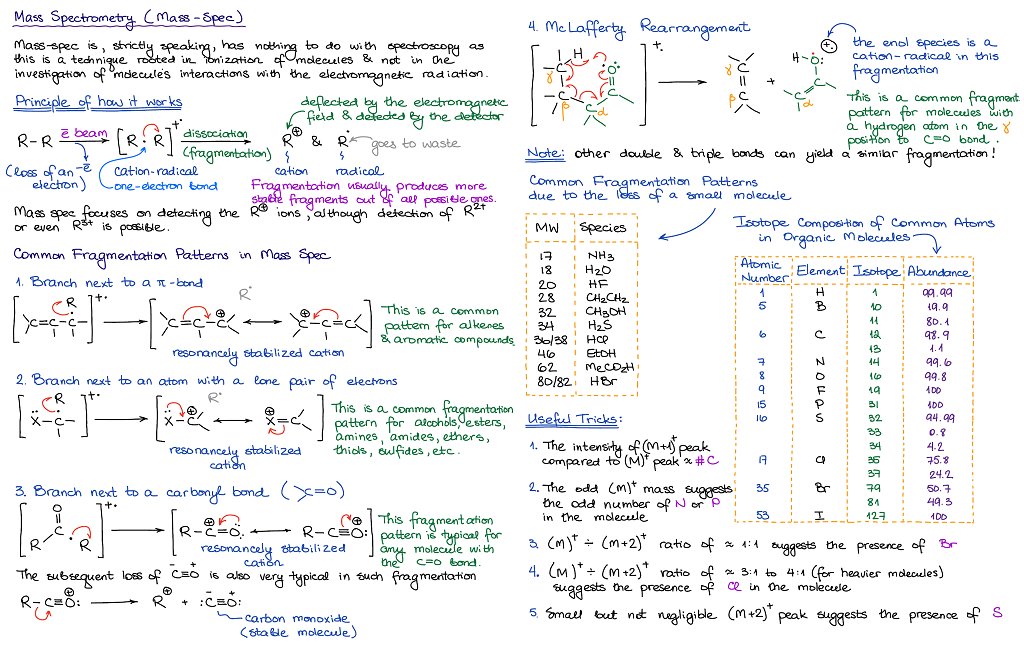 Mass Spectrometry (Mass-Spec)
Mass-spec is, strictly speaking, has nothing to do with spectroscopy as
this is a technique rooted in ionization of molecules & not in the
investigation of molecule's interactions with the electromagnetic radiation.
Principle of how it works
deflected by the electromagnetic
field & detected by the detector
R–R e̅ beam [R·R]+· dissociation R⊕ & R· goes to waste
(fragmentation)
(loss of an e̅
electron)
cation-radical
one-electron bond
cation radical
Fragmentation usually produces more
stable fragments out of all possible ones.
Mass spec focuses on detecting the R⊕ ions, although detection of R2+
or even R3+ is possible.
Common Fragmentation Patterns in Mass Spec
1. Branch next to a π-bond
R +· R·
This is a common
pattern for alkenes
& aromatic compounds.
resonancely stabilized cation
2. Branch next to an atom with a lone pair of electrons
X R +· R· X X
This is a common fragmentation
pattern for alcohols, esters,
amines, amides, ethers,
thiols, sulfides, etc.
resonancely stabilized
cation
3. Branch next to a carbonyl bond (>=O)
O R C R +· R–C=O: R–C≡O:
This fragmentation
pattern is typical for
any molecule with
the C=O bond.
resonancely stabilized
cation
The subsequent loss of C≡O is also very typical in such fragmentation
R–C≡O: R⊕ + :C≡O:
carbon monoxide
(stable molecule)
4. McLafferty Rearrangement
C H O C γ C β C α +· γ C β C + H–O C C α
the enol species is a
cation-radical in this
fragmentation
This is a common fragment
pattern for molecules with
a hydrogen atom in the γ
position to C=O bond.
Note: other double & triple bonds can yield a similar fragmentation!
Common Fragmentation Patterns
due to the loss of a small molecule
MW Species
17 NH3
18 H2O
20 HF
28 CH2CH2
32 CH3OH
34 H2S
36/38 HCl
46 EtOH
62 MeCO2H
80/82 HBr
Isotope Composition of Common Atoms
in Organic Molecules
Atomic
Number Element Isotope Abundance
1 H 1 99.99
5 B 10 19.9
11 80.1
6 C 12 98.9
13 1.1
7 N 14 99.6
8 O 16 99.8
9 F 19 100
15 P 31 100
16 S 32 94.99
33 0.8
34 4.2
17 Cl 35 75.8
37 24.2
35 Br 79 50.7
81 49.3
53 I 127 100
Useful Tricks:
1. The intensity of (M+1)+ peak
compared to (M)+ peak ≈ #C
2. The odd (M)+ mass suggests
the odd number of N or P
in the molecule
3. (M)+ ÷ (M+2)+ ratio of ≈ 1:1 suggests the presence of Br
4. (M)+ ÷ (M+2)+ ratio of ≈ 3:1 to 4:1 (for heavier molecules)
suggests the presence of Cl in the molecule
5. Small but not negligible (M+2)+ peak suggests the presence of S